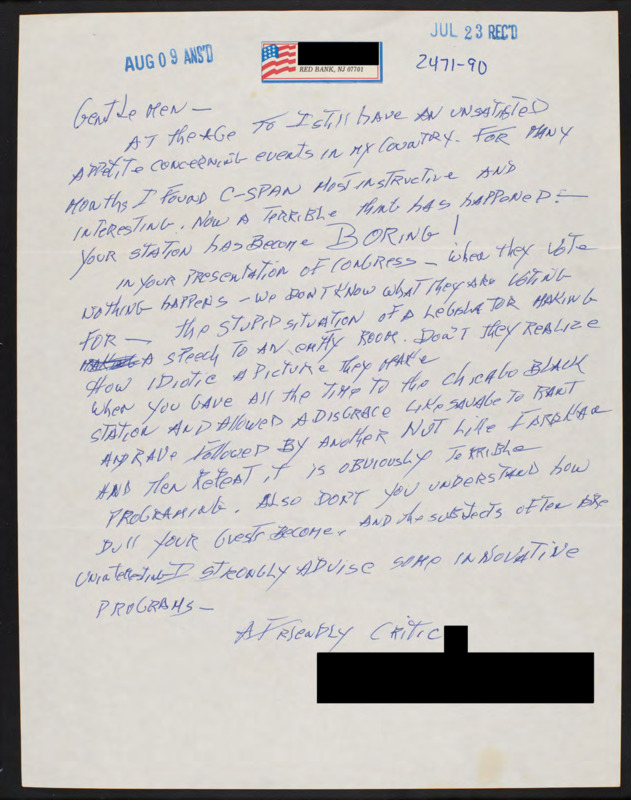 JUL 23 REC'D
AUG 09 ANS'D
RED BANK, NJ 07701
2471-90
Gentlemen —
AT the AGE 70 I still have AN UNSATIATED
APPETITE CONCERNING EVENTS IN MY COUNTRY. FOR MANY
MONTHS I FOUND C-SPAN MOST INSTRUCTIVE AND
INTERESTING. NOW A TERRIBLE thing has happened: —
YOUR STATION has Become BORING!
IN YOUR PRESENTATION OF CONGRESS — when they VOTE
NOTHING HAPPENS — WE DON'T KNOW WHAT THEY ARE VOTING
FOR — the STUPID SITUATION OF A LEGISLATOR MAKING
A SPEECH TO AN EMPTY ROOM. DON'T they REALIZE
HOW IDIOTIC A PICTURE they MAKE
WHEN YOU GAVE All the TIME TO the CHICAGO BLACK
STATION AND Allowed A DISGRACE LIKE SAVAGE TO RANT
AND RAVE followed BY ANOTHER NUT LIKE
AND then REPEAT IT IS OBVIOUSLY TERRIBLE
PROGRAMING. Also DON'T YOU UNDERSTAND how
DULL YOUR Guests BECOME. AND the SUBJECTS OFTEN ARE
Uninteresting I STRONGLY ADVISE SOME INNOVATIVE
PROGRAMS —
A FRIENDLY CRITIC